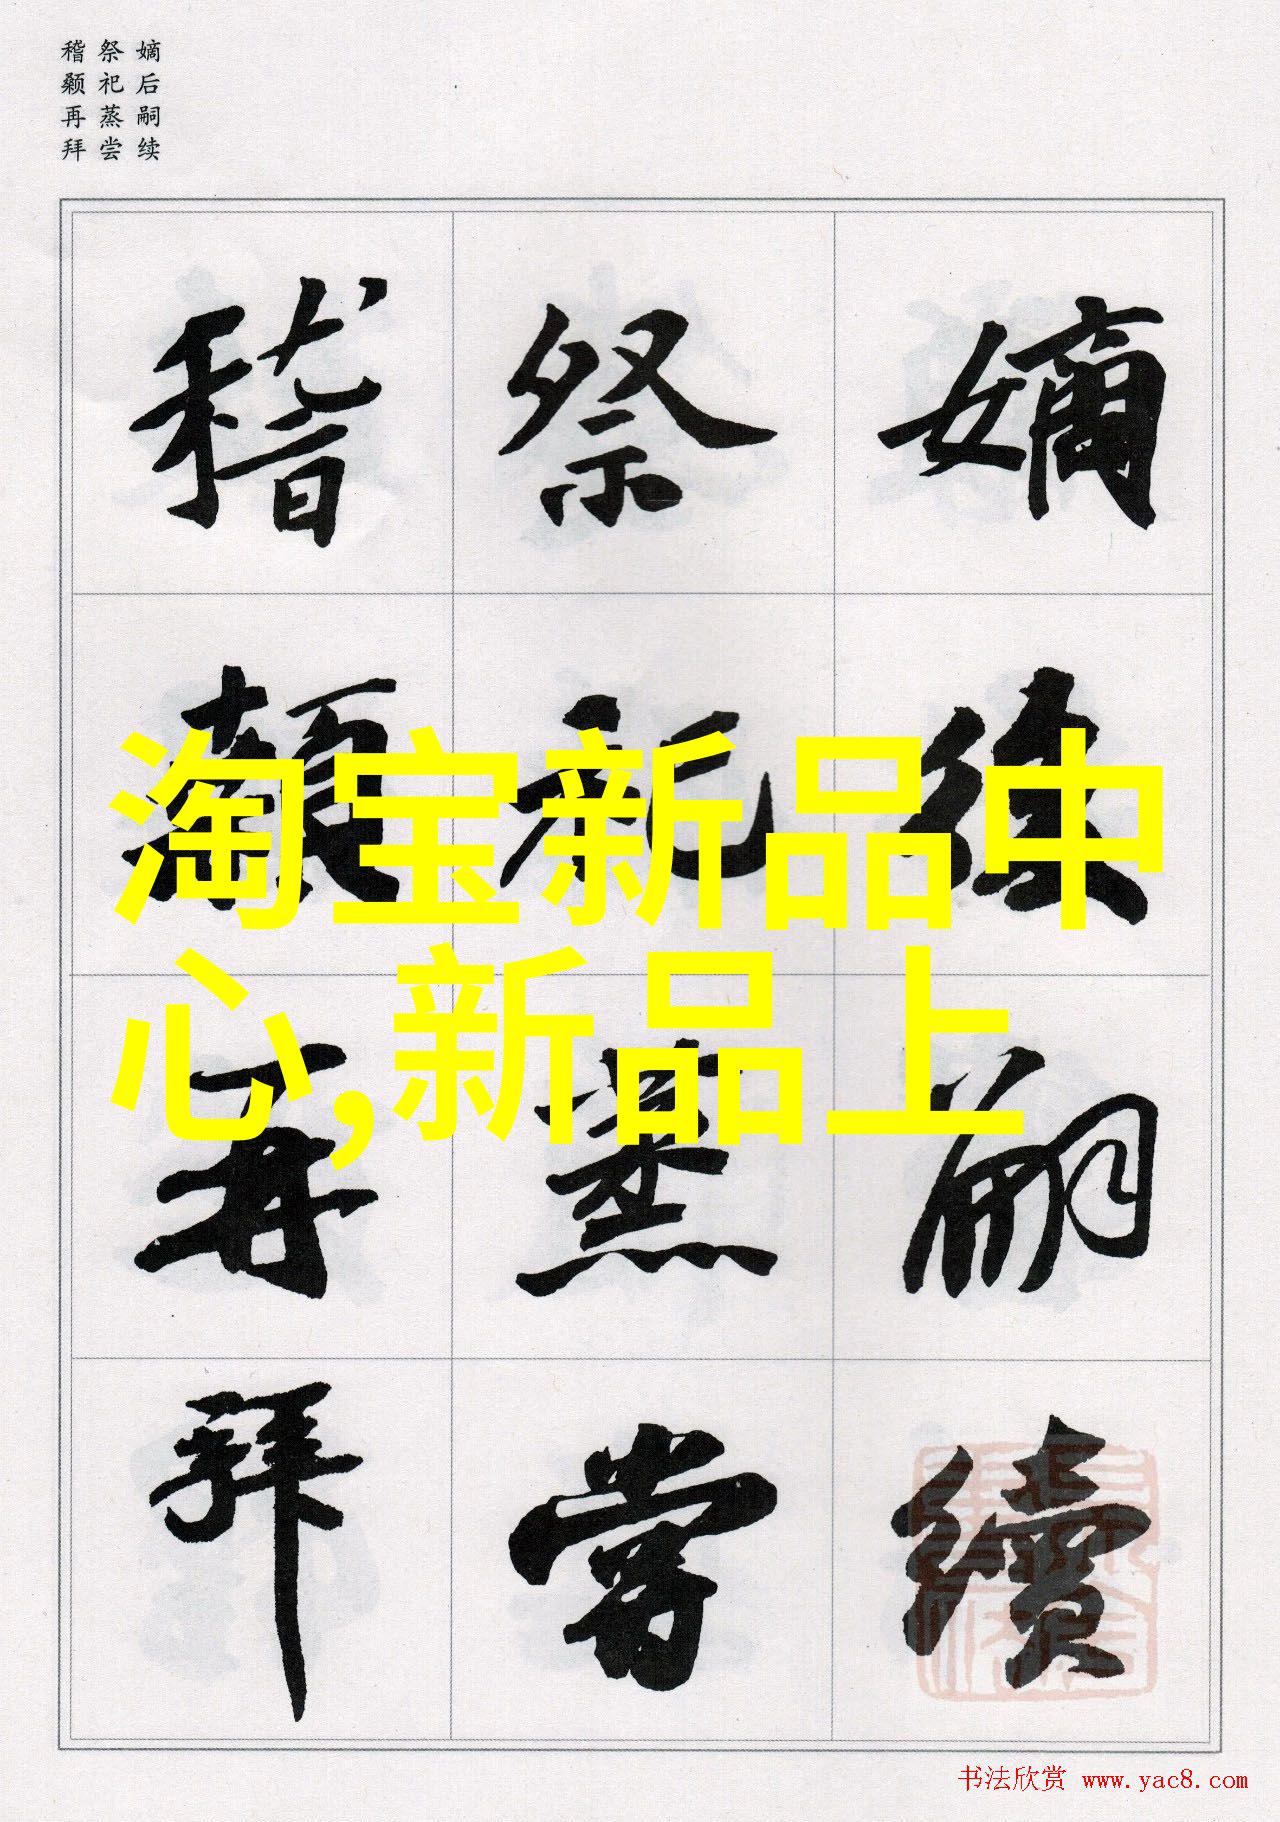 嫡后嗣续
祭祀蒸尝
稽颡再拜
嫡後嗣續
祭祀蒸嘗
稽顙再拜
淘宝新品中
心,新品上
书法欣赏 www.yac8.com